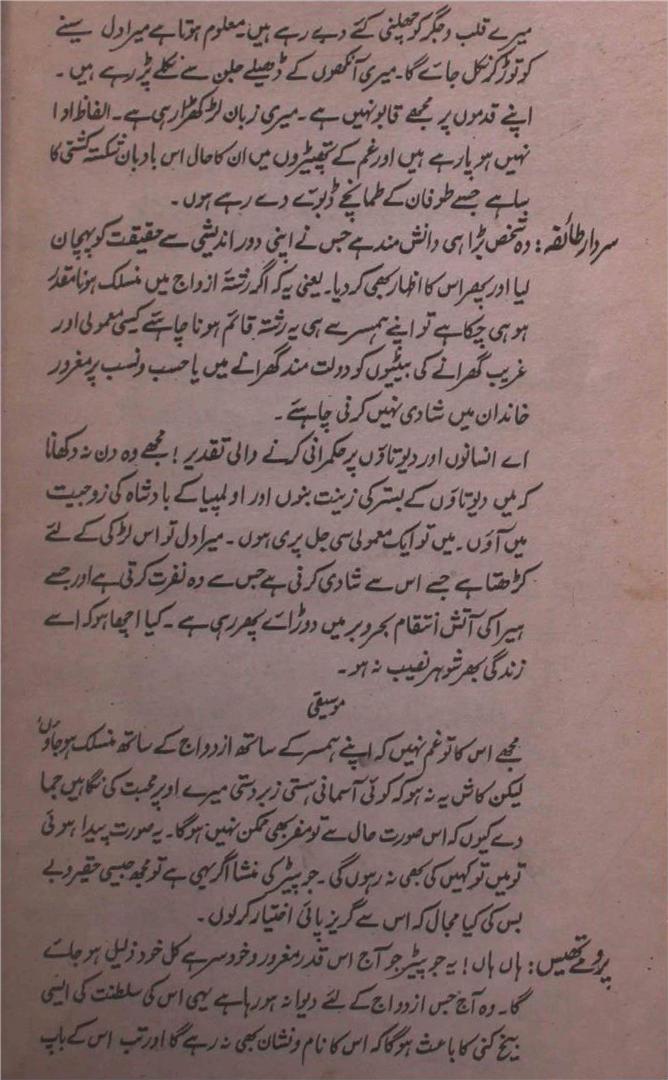 میرے قلب و جگر کو چھلنی کئے دے رہے ہیں۔ معلوم ہوتا ہے میرا دل سینے
کو توڑ کر نکل جائے گا۔ میری آنکھوں کے ڈھیلے جلن سے نکلے پڑ رہے ہیں۔
اپنے قدموں پر مجھے قابو نہیں ہے۔ میری زبان لڑکھڑا رہی ہے۔ الفاظ ادا
نہیں ہو پا رہے ہیں اور غم کے تھپیڑوں میں ان کا حال اس بادبان شکستہ کشتی کا
سا ہے جسے طوفان کے طمانچے ڈبوئے دے رہے ہوں۔
سردار طائفہ: وہ شخص بڑا ہی دانش مند ہے جس نے اپنی دور اندیشی سے حقیقت کو پہچان
لیا اور پھر اس کا اظہار بھی کر دیا۔ یعنی یہ کہ اگر رشتۂ ازدواج میں منسلک ہونا مقدر
ہو ہی چکا ہے تو اپنے ہمسر سے ہی یہ رشتہ قائم ہونا چاہئے کسی معمولی اور
غریب گھرانے کی بیٹیوں کو دولت مند گھرانے میں یا حسب و نسب پر مغرور
خاندان میں شادی نہیں کرنی چاہئے۔
اے انسانوں اور دیوتاؤں پر حکمرانی کرنے والی تقدیر! مجھے وہ دن نہ دکھانا
کہ میں دیوتاؤں کے بستر کی زینت بنوں اور اولمپیا کے بادشاہ کی زوجیت
میں آؤں۔ میں تو ایک معمولی سی جل پری ہوں۔ میرا دل تو اس لڑکی کے لئے
کڑھتا ہے جسے اس سے شادی کرنی ہے جس سے وہ نفرت کرتی ہے اور جسے
ہیرا کی آتش انتقام بحر و بر میں دوڑائے پھر رہی ہے۔ کیا اچھا ہو کہ اسے
زندگی بھر شوہر نصیب نہ ہو۔
موسیقی
مجھے اس کا تو غم نہیں کہ اپنے ہمسر کے ساتھ ازدواج کے ساتھ منسلک ہو جاؤں
لیکن کاش یہ نہ ہو کہ کوئی آسمانی ہستی زبردستی میرے اوپر محبت کی نگاہیں جما
دے کیوں کہ اس صورت حال سے تو مفر بھی ممکن نہیں ہوگا۔ یہ صورت پیدا ہوئی
تو میں تو کہیں کی بھی نہ رہوں گی۔ جوپیٹر کی منشا اگر یہی ہے تو مجھ جیسی حقیر و بے
بس کی کیا مجال کہ اس سے گریز پائی اختیار کر لوں۔
پرومتھیس: ہاں ہاں! یہ جوپیٹر جو آج اس قدر مغرور و خود سر ہے کل خود ذلیل ہو جائے
گا۔ وہ آج جس ازدواج کے لئے دیوانہ ہو رہا ہے یہی اس کی سلطنت کی ایسی
بیخ کنی کا باعث ہوگا کہ اس کا نام و نشان بھی نہ رہے گا اور تب اس کے باپ